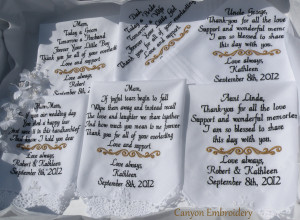 Mom,
Today a Groom
Tomorrow a Husband
Forever Your Little Boy
Thank you for all of your
everlasting
Love and support
Uncle
Thank you for all the love
Support and wonderful memories
I am so blessed to share
this day with you.
Love always,
Kathleen
September 8th, 2012
Mom,
our wedding day
a happy tear
Love always,
Robert & Kathleen
September 8th, 2012
If joyful tears begin to fall
Wipe them away and instead recall
The love and laughter we share together
And how much you mean to me forever
Thank you for all of your everlasting
Love and support
Love always,
Kathleen
September 8th, 2012
Aunt Linda,
Thank you for all the love
Support and wonderful memories
I am so blessed to share
this day with you.
Love always,
Robert & Kathleen
September 8th, 2012
Canyon Embroidery